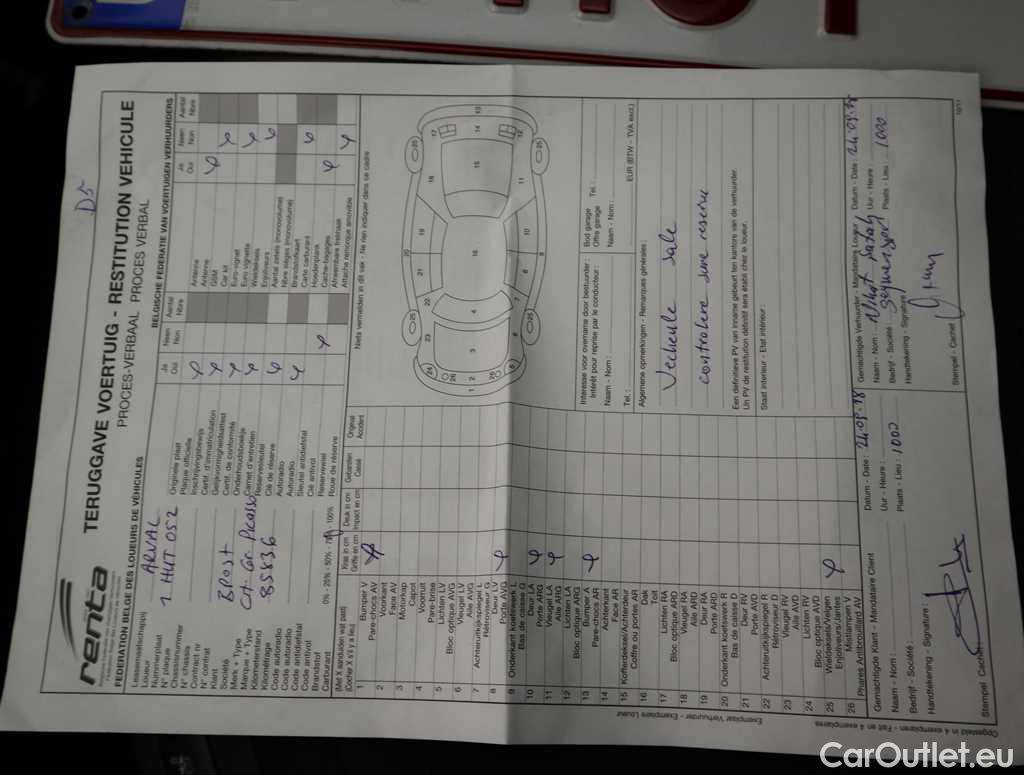 D5
renta
TERUGGAVE VOERTUIG - RESTITUTION VEHICULE
PROCES-VERBAAL PROCES VERBAL
FEDERATION BELGE DES LOUEURS DE VÉHICULES
BELGISCHE FEDERATIE VAN VOERTUIGEN VERHUURDERS
Leasemaatschappij
Loueur
ARVAL
Nummerplaat
N° plaque
1 HUT 052
Chassisnummer
N° chassis
Contract nr
N° contrat
Klant
Société
BPOST
Merk + Type
Marque + Type
Cit. C4 Picasso
Kilometerstand
Kilométrage
85836
Code autoradio
Code autoradio
Code antidiefstal
Code antivol
Brandstof
Carburant
0% - 25% - 50% - 75% - 100%
Ja
Oui
Neen
Non
Aantal
Nbre
Originele plaat
Plaque officielle
Inschrijvingsbewijs
Certif. d'immatriculation
Gelijkvormigheidsattest
Certif. de conformité
Onderhoudsboekje
Carnet d'entretien
Reservesleutel
Clé de réserve
Autoradio
Autoradio
Sleutel antidiefstal
Clé antivol
Reservewiel
Roue de réserve
Ja
Oui
Neen
Non
Aantal
Nbre
Antenne
Antenne
GSM
Car kit
Euro-vignet
Euro vignette
Wieldeksels
Enjoliveurs
Aantal zetels (monovolume)
Nbre sièges (monovolume)
Brandstofkaart
Carte carburant
Hoedenplank
Cache-bagages
Afneembare trekhaak
Attache remorque amovible
(Met X aanduiden wat past)
(Cocher X s'il y a lieu)
Kras in cm
Griffe en cm
Deuk in cm
Impact en cm
Gebarsten
Cassé
Original
Accident
Niets vermelden in dit vak - Ne rien indiquer dans ce cadre
1 Bumper V
Pare-chocs AV
2 Voorkant
Face AV
3 Motorkap
Capot
4 Voorruit
Pare-brise
5 Lichten LV
Bloc optique AVG
6 Vleugel LV
Aile AVG
7 Achteruitkijkspiegel L
Rétroviseur G
8 Deur LV
Porte AVG
9 Onderkant koetswerk L
Bas de caisse G
10 Deur LA
Porte ARG
11 Vleugel LA
Aile ARG
12 Lichten LA
Bloc optique ARG
13 Bumper A
Pare-chocs AR
14 Achterkant
Face AR
15 Kofferdeksel/Achterdeur
Coffre ou portes AR
16 Dak
Toit
17 Lichten RA
Bloc optique ARD
18 Vleugel RA
Aile ARD
19 Deur RA
Porte ARD
20 Onderkant koetswerk R
Bas de caisse D
21 Deur RV
Porte AVD
22 Achteruitkijkspiegel R
Rétroviseur D
23 Vleugel RV
Aile AVD
24 Lichten RV
Bloc optique AVD
25 Wieldeksels/Velgen
Enjoliveurs/Jantes
26 Mistlampen V
Phares Antibrouillard AV
Interesse voor overname door bestuurder :
Intérêt pour reprise par le conducteur :
Naam - Nom :
Tel. :
Bod garage
Offre garage
Tel. :
Naam - Nom :
EUR (BTW - TVA excl.)
Algemene opmerkingen - Remarques générales :
Vecheule sale
controlere sure reserve
Een definitieve PV van inname gebeurt ten kantore van de verhuurder.
Un PV de restitution définitif sera établi chez le loueur.
Staat interieur - Etat intérieur :
Gemachtigde Klant - Mandataire Client
Datum - Date : 24.09.18
Naam - Nom :
Uur - Heure :
Bedrijf - Société :
Plaats - Lieu : 1000
Handtekening - Signature :
Stempel - Cachet
Gemachtigde Verhuurder - Mandataire Loueur
Datum - Date : 24.09.18
Naam - Nom :
Uur - Heure :
Bedrijf - Société :
Plaats - Lieu : 1000
Handtekening - Signature :
Stempel - Cachet
Opgesteld in 4 exemplaren - Fait en 4 exemplaires
Exemplaar Verhuurder - Exemplaire Loueur
10/11
CarOutlet.eu